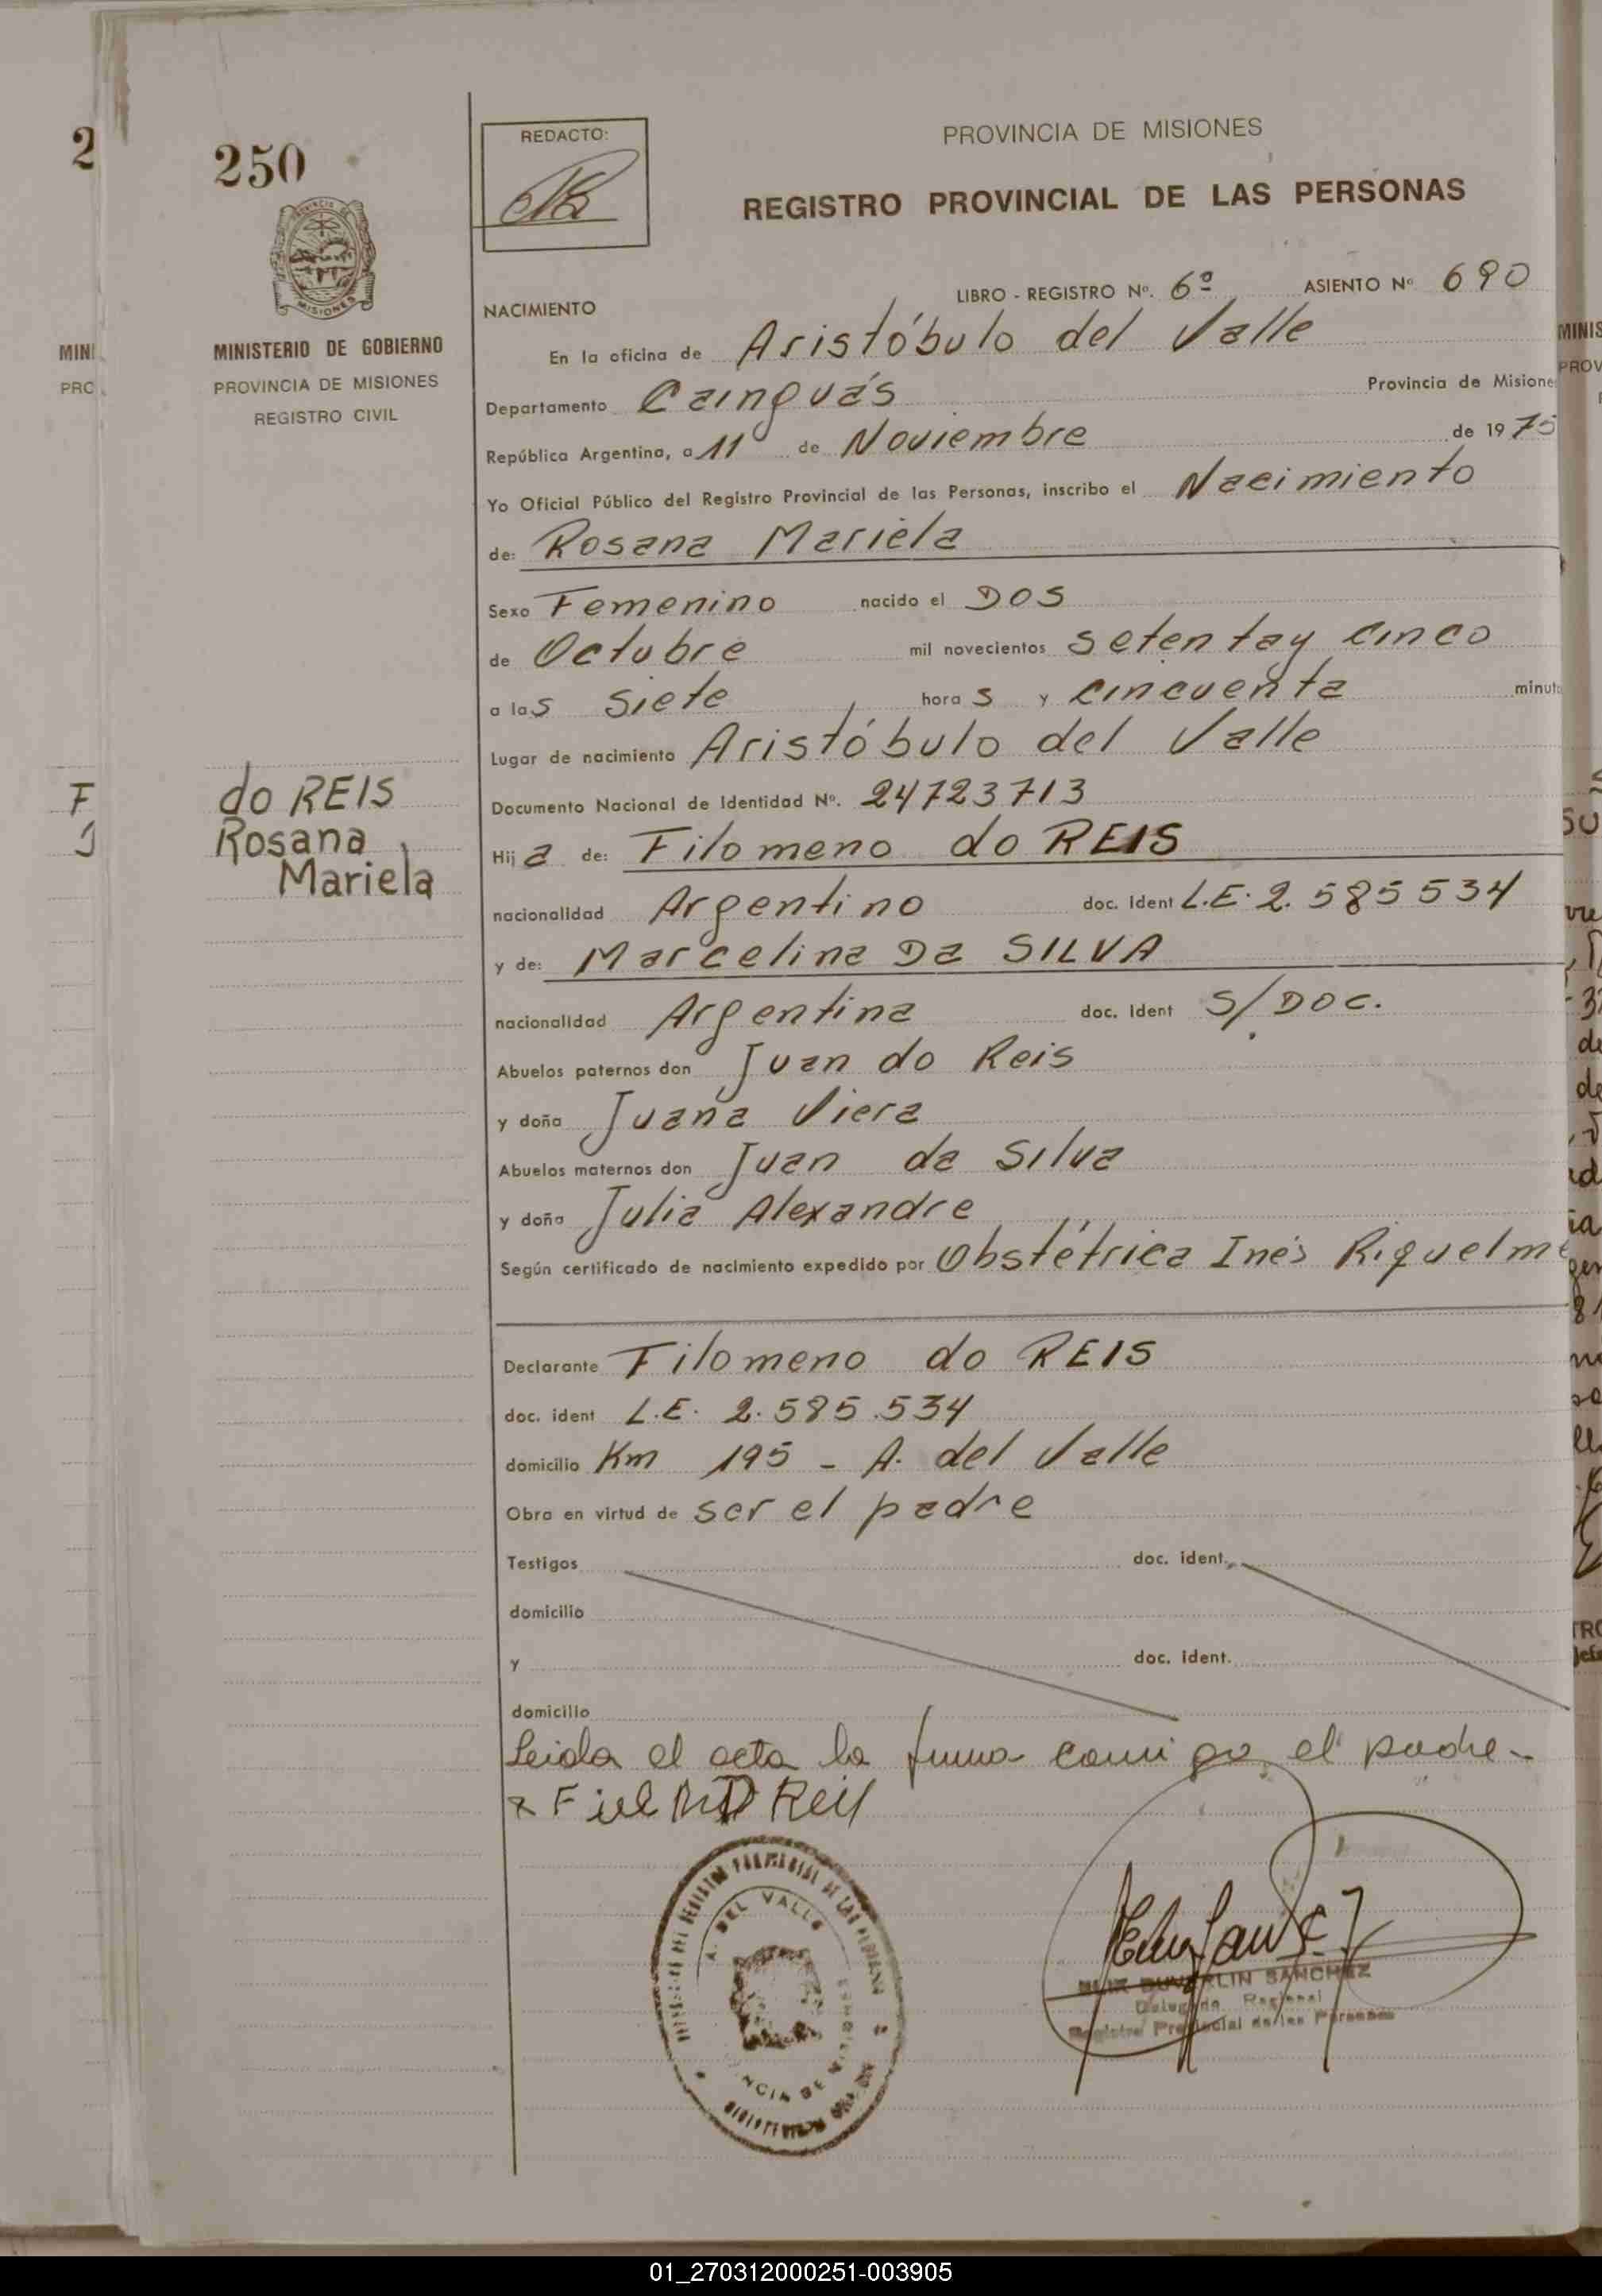 250
REDACTO:
PROVINCIA DE MISIONES
REGISTRO PROVINCIAL DE LAS PERSONAS
MISIONES
MINISTERIO DE GOBIERNO
PROVINCIA DE MISIONES
REGISTRO CIVIL
LIBRO - REGISTRO Nº. 6º ASIENTO Nº 690
NACIMIENTO
En la oficina de Aristóbulo del Valle
Departamento Cainguás Provincia de Misione
República Argentina, a 11 de Noviembre de 1975
Yo Oficial Público del Registro Provincial de las Personas, inscribo el Nacimiento
de: Rosana Mariela
Sexo Femenino nacido el DOS
de Octubre mil novecientos setentay cinco
a las siete horas y cincuenta minut
Lugar de nacimiento Aristóbulo del Valle
do REIS
Rosana
Mariela
Documento Nacional de Identidad Nº. 24723713
Hija de: Filomeno do REIS
nacionalidad Argentino doc. Ident L.E. 2.585534
y de: Marcelina Da SILVA
nacionalidad Argentina doc. Ident S/DOC.
Abuelos paternos don Juan do Reis
y doña Juana Viera
Abuelos maternos don Juan da Silva
y doña Julia Alexandre
Según certificado de nacimiento expedido por Obstétrica Inés Riquelme
Declarante Filomeno do REIS
doc. ident L.E. 2.585.534
domicilio Km 195 - A. del Valle
Obra en virtud de ser el padre
Testigos doc. ident.
domicilio
y doc. ident.
domicilio
Leida el acta la firma conmigo el padre-
A. DEL VALLE
SANCHEZ
Delegado Regional
Registro Provincial de las Personas
01_270312000251-003905